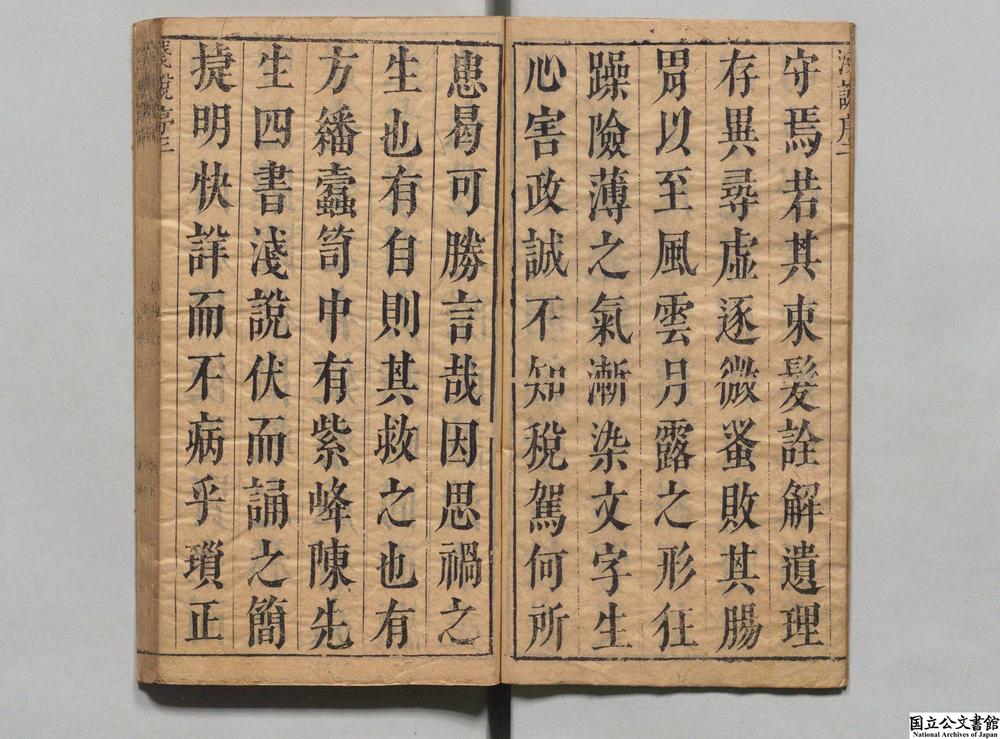 守焉若其束髮詮解遺理
存異尋虛逐微蚤敗其腸
胃以至風雲月露之形狂
躁險薄之氣漸染文字生
心害政誠不知稅駕何所
患曷可勝言哉因思禍之
生也有自則其救之也有
方繙蠹笥中有紫峰陳先
生四書淺說伏而誦之簡
捷明快詳而不病乎瑣正
淺說序三
国立公文書館
National Archives of Japan